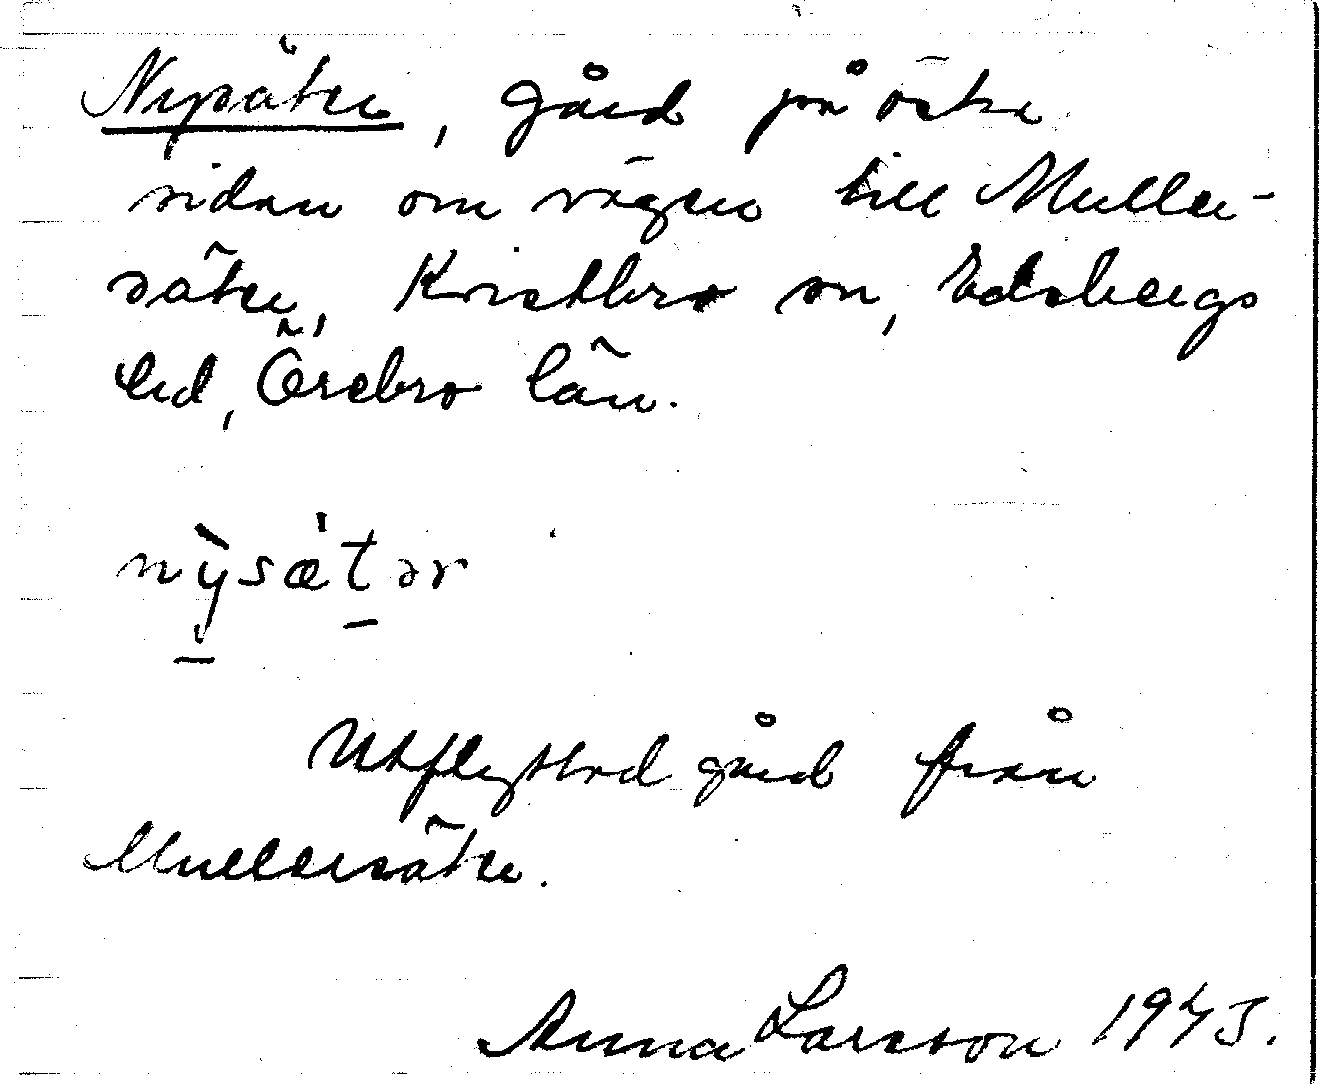 Nysäter, gård på östra
sidan om vägen till Muller-
säter, Kvistbro sn, Edsbergs
hd, Örebro län.
nỳsæ̍tər
Utflyttad gård från
Mullersäter.
Anna Larsson 1943.